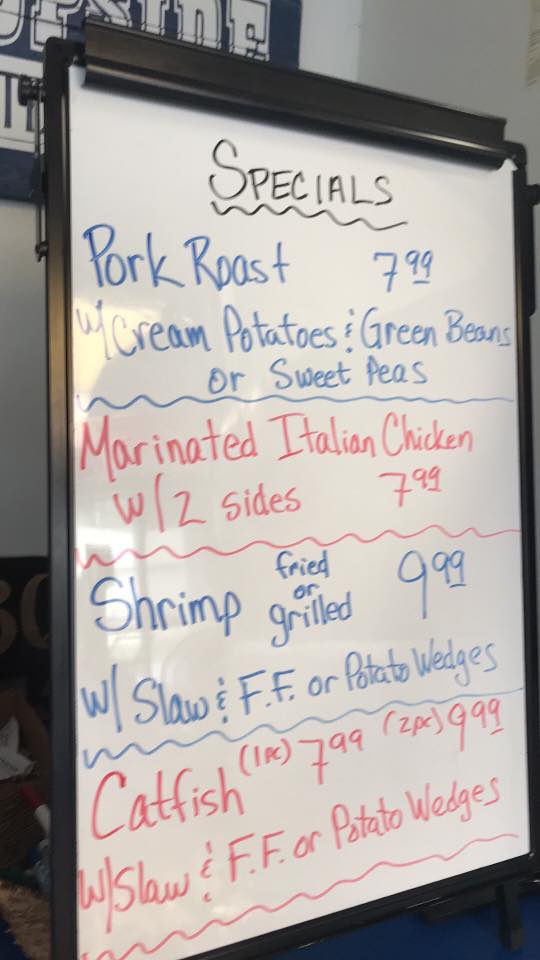 SPECIALS
Pork Roast 7.99
w/Cream Potatoes & Green Beans
or Sweet Peas
Marinated Italian Chicken
w/2 sides 7.99
Shrimp fried or grilled 9.99
w/ Slaw & F.F. or Potato Wedges
Catfish (1pc) 7.99 (2pc) 9.99
w/Slaw & F.F. or Potato Wedges